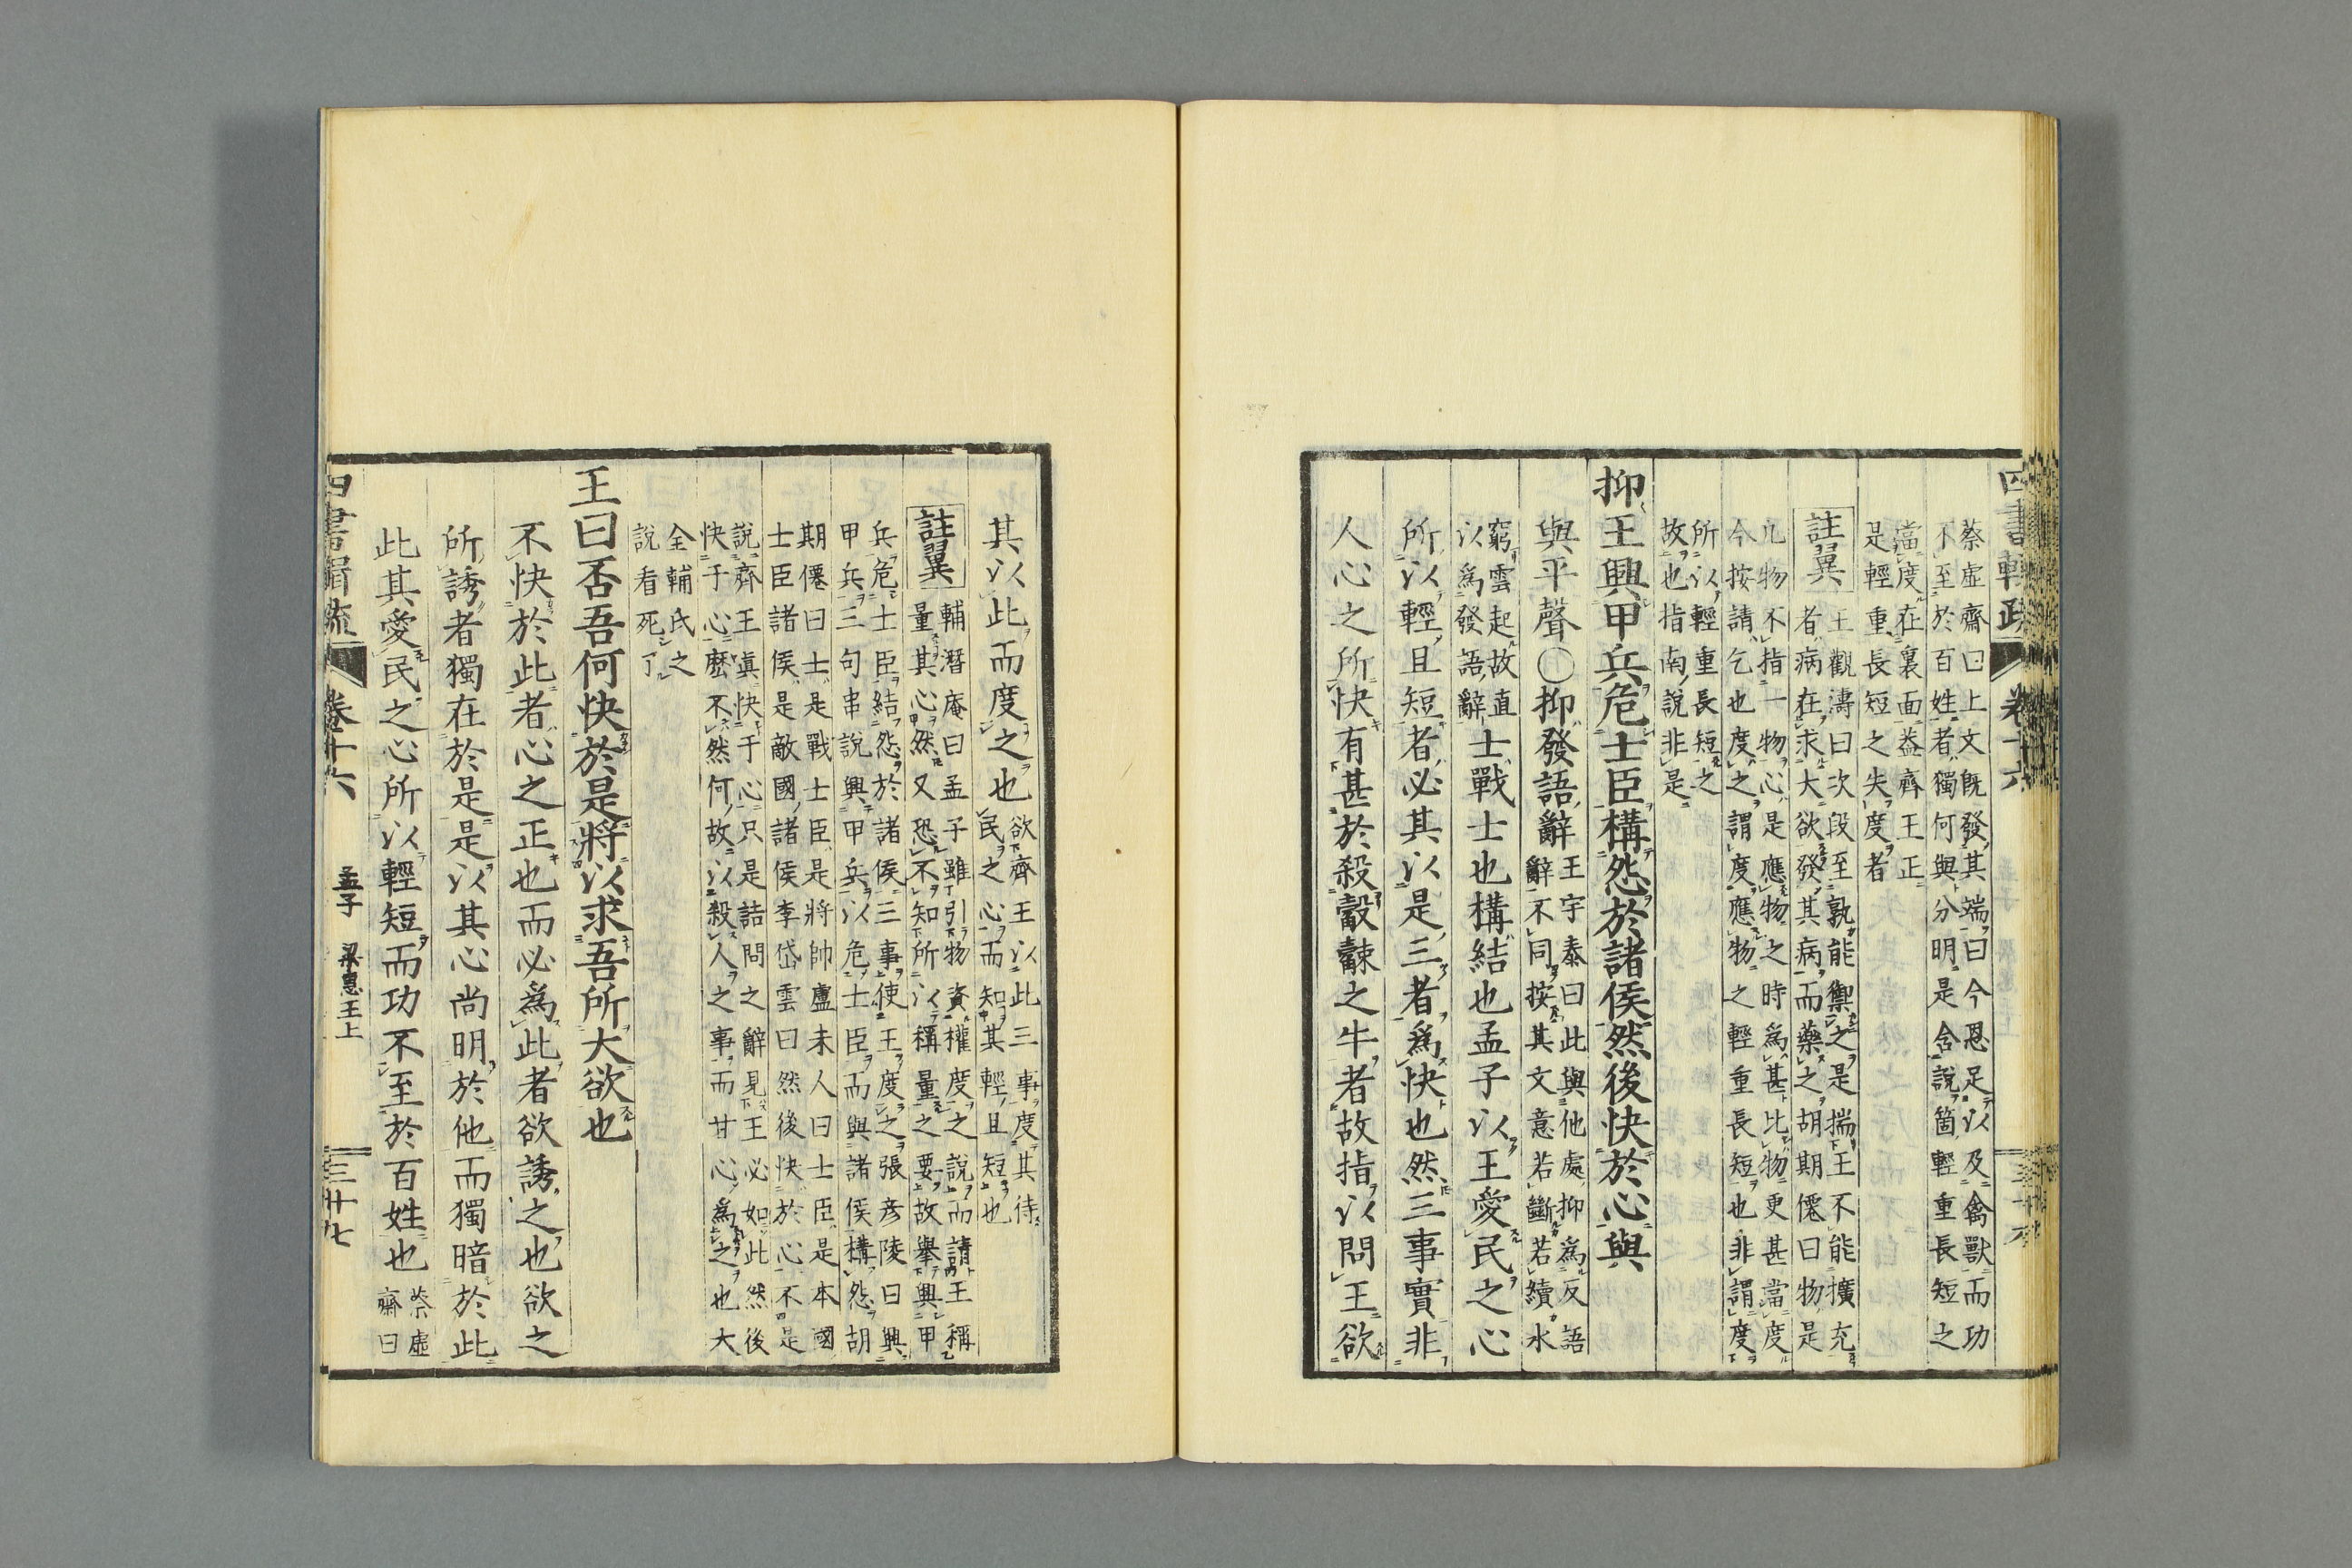 四書輯疏 卷十六
蔡虛齋曰上文既發其端曰今恩足以及禽獸而功
不至於百姓者獨何與分明是含說箇輕重長短之
當度在裏面葢齊王正
是輕重長短之失度者
註翼
王觀濤曰次段至孰能禦之是揣王不能擴充
者病在求大欲發其病而藥之胡期僊曰物是
凡物不指一物心是應物之時為甚比物更甚當度
今按請乞也度之謂度應物之輕重長短也非謂度
所以輕重長短之
故也指南說非是
抑王興甲兵危士臣構怨於諸侯然後快於心與
與平聲○抑發語辭
王宇泰曰此與他處抑為反語
辭不同按其文意若斷若續水
窮雲起故直
以為發語辭
士戰士也構結也孟子以王愛民之心
所以輕且短者必其以是三者為快也然三事實非
人心之所快有甚於殺觳觫之牛者故指以問王欲
其以此而度之也
欲齊王以此三事度其待
民之心而知其輕且短也
註翼
輔潛庵曰孟子雖引物資權度之說而請王稱
量其心然又恐不知所以稱量之要故舉興甲
兵危士臣結怨於諸侯三事使王度之張彥陵曰興
甲兵三句串說興甲兵以危士臣而與諸侯構怨胡
期僊曰士是戰士臣是將帥盧未人曰士臣是本國
士臣諸侯是敵國諸侯李岱雲曰然後快於心不是
說齊王眞快于心只是詰問之辭見王必如此然後
快于心麽不然何故以殺人之事而甘心為之也大
全輔氏之
說看死了
王曰否吾何快於是將以求吾所大欲也
不快於此者心之正也而必為此者欲誘之也欲之
所誘者獨在於是是以其心尚明於他而獨暗於此
此其愛民之心所以輕短而功不至於百姓也
蔡虛
齋曰
四書輯疏 卷十六 孟子 梁惠王上 三十七